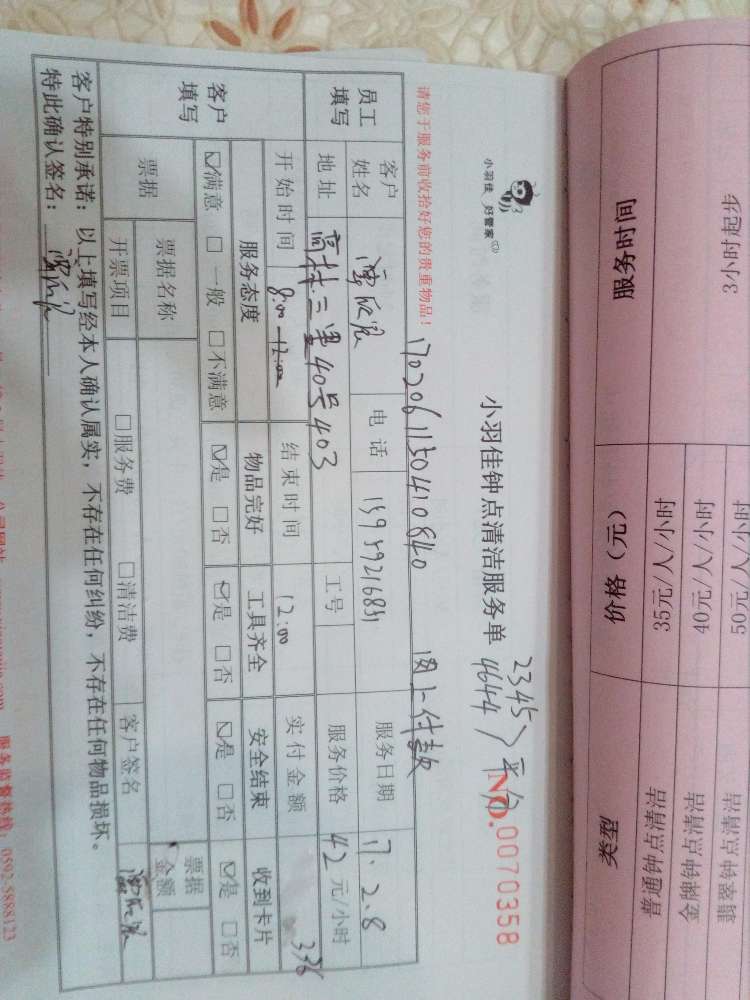 小羽佳 好管家
小羽佳钟点清洁服务单
2345
4644
平分
NO. 0070358
请您于服务前收拾好您的贵重物品！
1702061150410840 网上付款
员工填写
客户姓名
电话
服务日期 17.2.8
地址 三里40号403
工号
服务价格 42 元/小时
客户填写
开始时间 8:00-12:00
结束时间 12:00
实付金额 336
服务态度 物品完好 工具齐全 安全结束 收到卡片
☑满意 □一般 □不满意 ☑是 □否 ☑是 □否 ☑是 □否 ☑是 □否
票据 票据名称 票据金额
开票项目 □服务费 □清洁费 客户签名
客户特别承诺：以上填写经本人确认属实，不存在任何纠纷，不存在任何物品损坏。
特此确认签名：
服务监督热线：0592-5888123
类型 价格（元） 服务时间
普通钟点清洁 35元/人/小时
金牌钟点清洁 40元/人/小时 3小时起步
翡翠钟点清洁 50元/人/小时